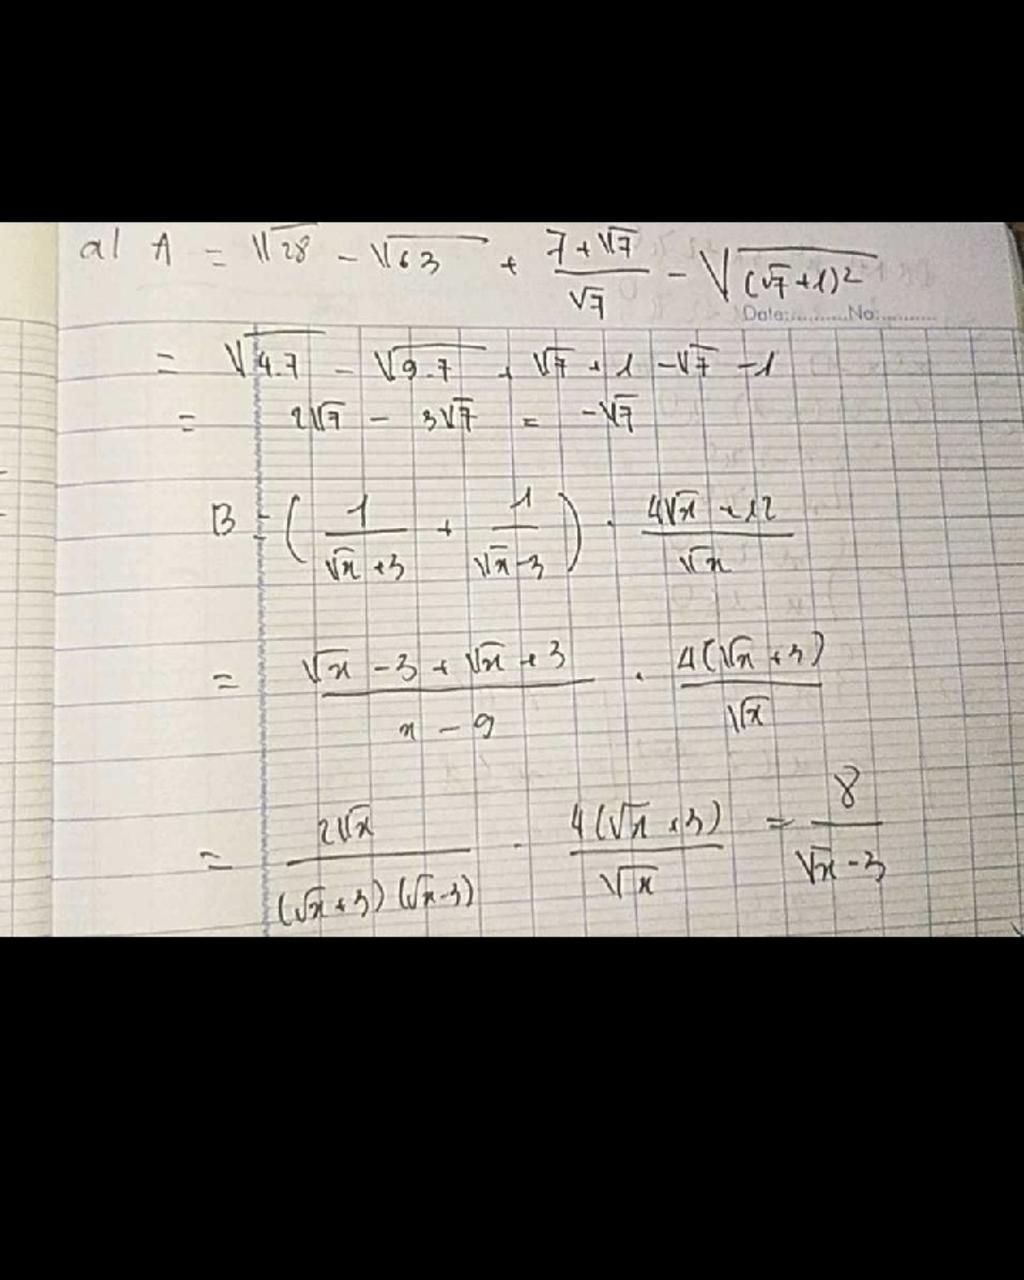 a/ A = √28 - √63 + (7 + √7)/√7 - √((√7 + 1)²)
Date:..........No:..........
= √(4.7) - √(9.7) + √7 + 1 - √7 - 1
= 2√7 - 3√7 = -√7
B = (1/(√x + 3) + 1/(√x - 3)) . (4√x + 12)/√x
= (√x - 3 + √x + 3)/(x - 9) . 4(√x + 3)/√x
= 2√x/((√x + 3)(√x - 3)) . 4(√x + 3)/√x = 8/(√x - 3)